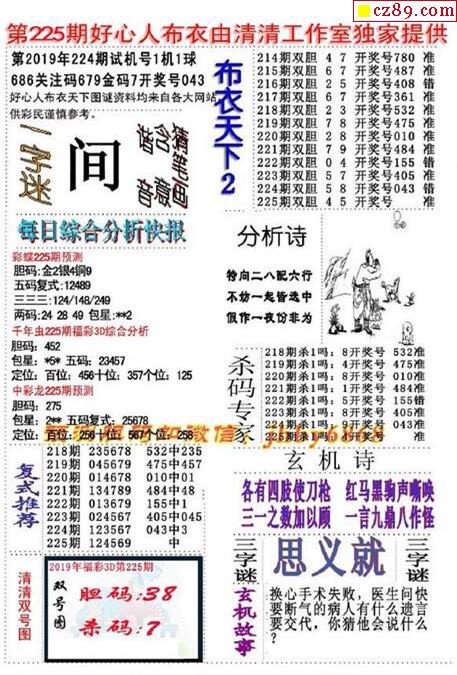 cz89.com
第225期好心人布衣由清清工作室独家提供
第2019年224期试机号1机1球
686关注码679金码7开奖号043
好心人布衣天下图谜资料均来自各大网站
供彩民谨慎参考。
一字谜
间
猜笔画
含意
谐音
布衣天下2
214期双胆 4 7 开奖号780 准
215期双胆 2 6 开奖号487 准
216期双胆 2 5 开奖号408 错
217期双胆 3 7 开奖号361 准
218期双胆 2 3 开奖号532 准
219期双胆 7 8 开奖号475 准
220期双胆 2 8 开奖号010 准
221期双胆 7 9 开奖号484 准
222期双胆 0 4 开奖号155 错
223期双胆 4 7 开奖号405 准
224期双胆 5 8 开奖号043 错
225期双胆 4 5 开奖号 准
每日综合分析快报
彩蝶225期预测
胆码:金2银4铜9
五码复式:12489
三三三:124/148/249
两码:24 28 49 包星:**2
千年虫225期福彩3D综合分析
胆码: 452
包星: *5* 五码: 23457
定位: 百位: 456十位: 357个位: 125
中彩龙225期预测
胆码: 275
包星: 2** 五码复式: 25678
定位: 百位: 256十位: 567个位: 258
分析诗
特向二八配六行
不妨一起皆选中
假作一夜份非为
杀码专家
218期杀1吗: 8开奖号 532准
219期杀1吗: 0开奖号 475准
220期杀1吗: 9开奖号 010准
221期杀1吗: 1开奖号 484准
222期杀1吗: 5开奖号 155错
223期杀1吗: 9开奖号 405准
复式推荐
218期 235678 532中235
219期 045679 475中457
220期 014678 010中01
222期 013679 155中1
223期 024567 405中045
224期 123567 043中3
225期 124569 中
玄机诗
各有四肢使刀枪 红马黑驹声嘶唤
三一之数加以顾 一言九鼎八作怪
清清双号图
2019年福彩3D第225期
双号图
胆码:38
杀码:7
三字谜
思义就
三字谜
玄机故事
换心手术失败，医生问快
要断气的病人有什么遗言
要交代，你猜他会说什么
?